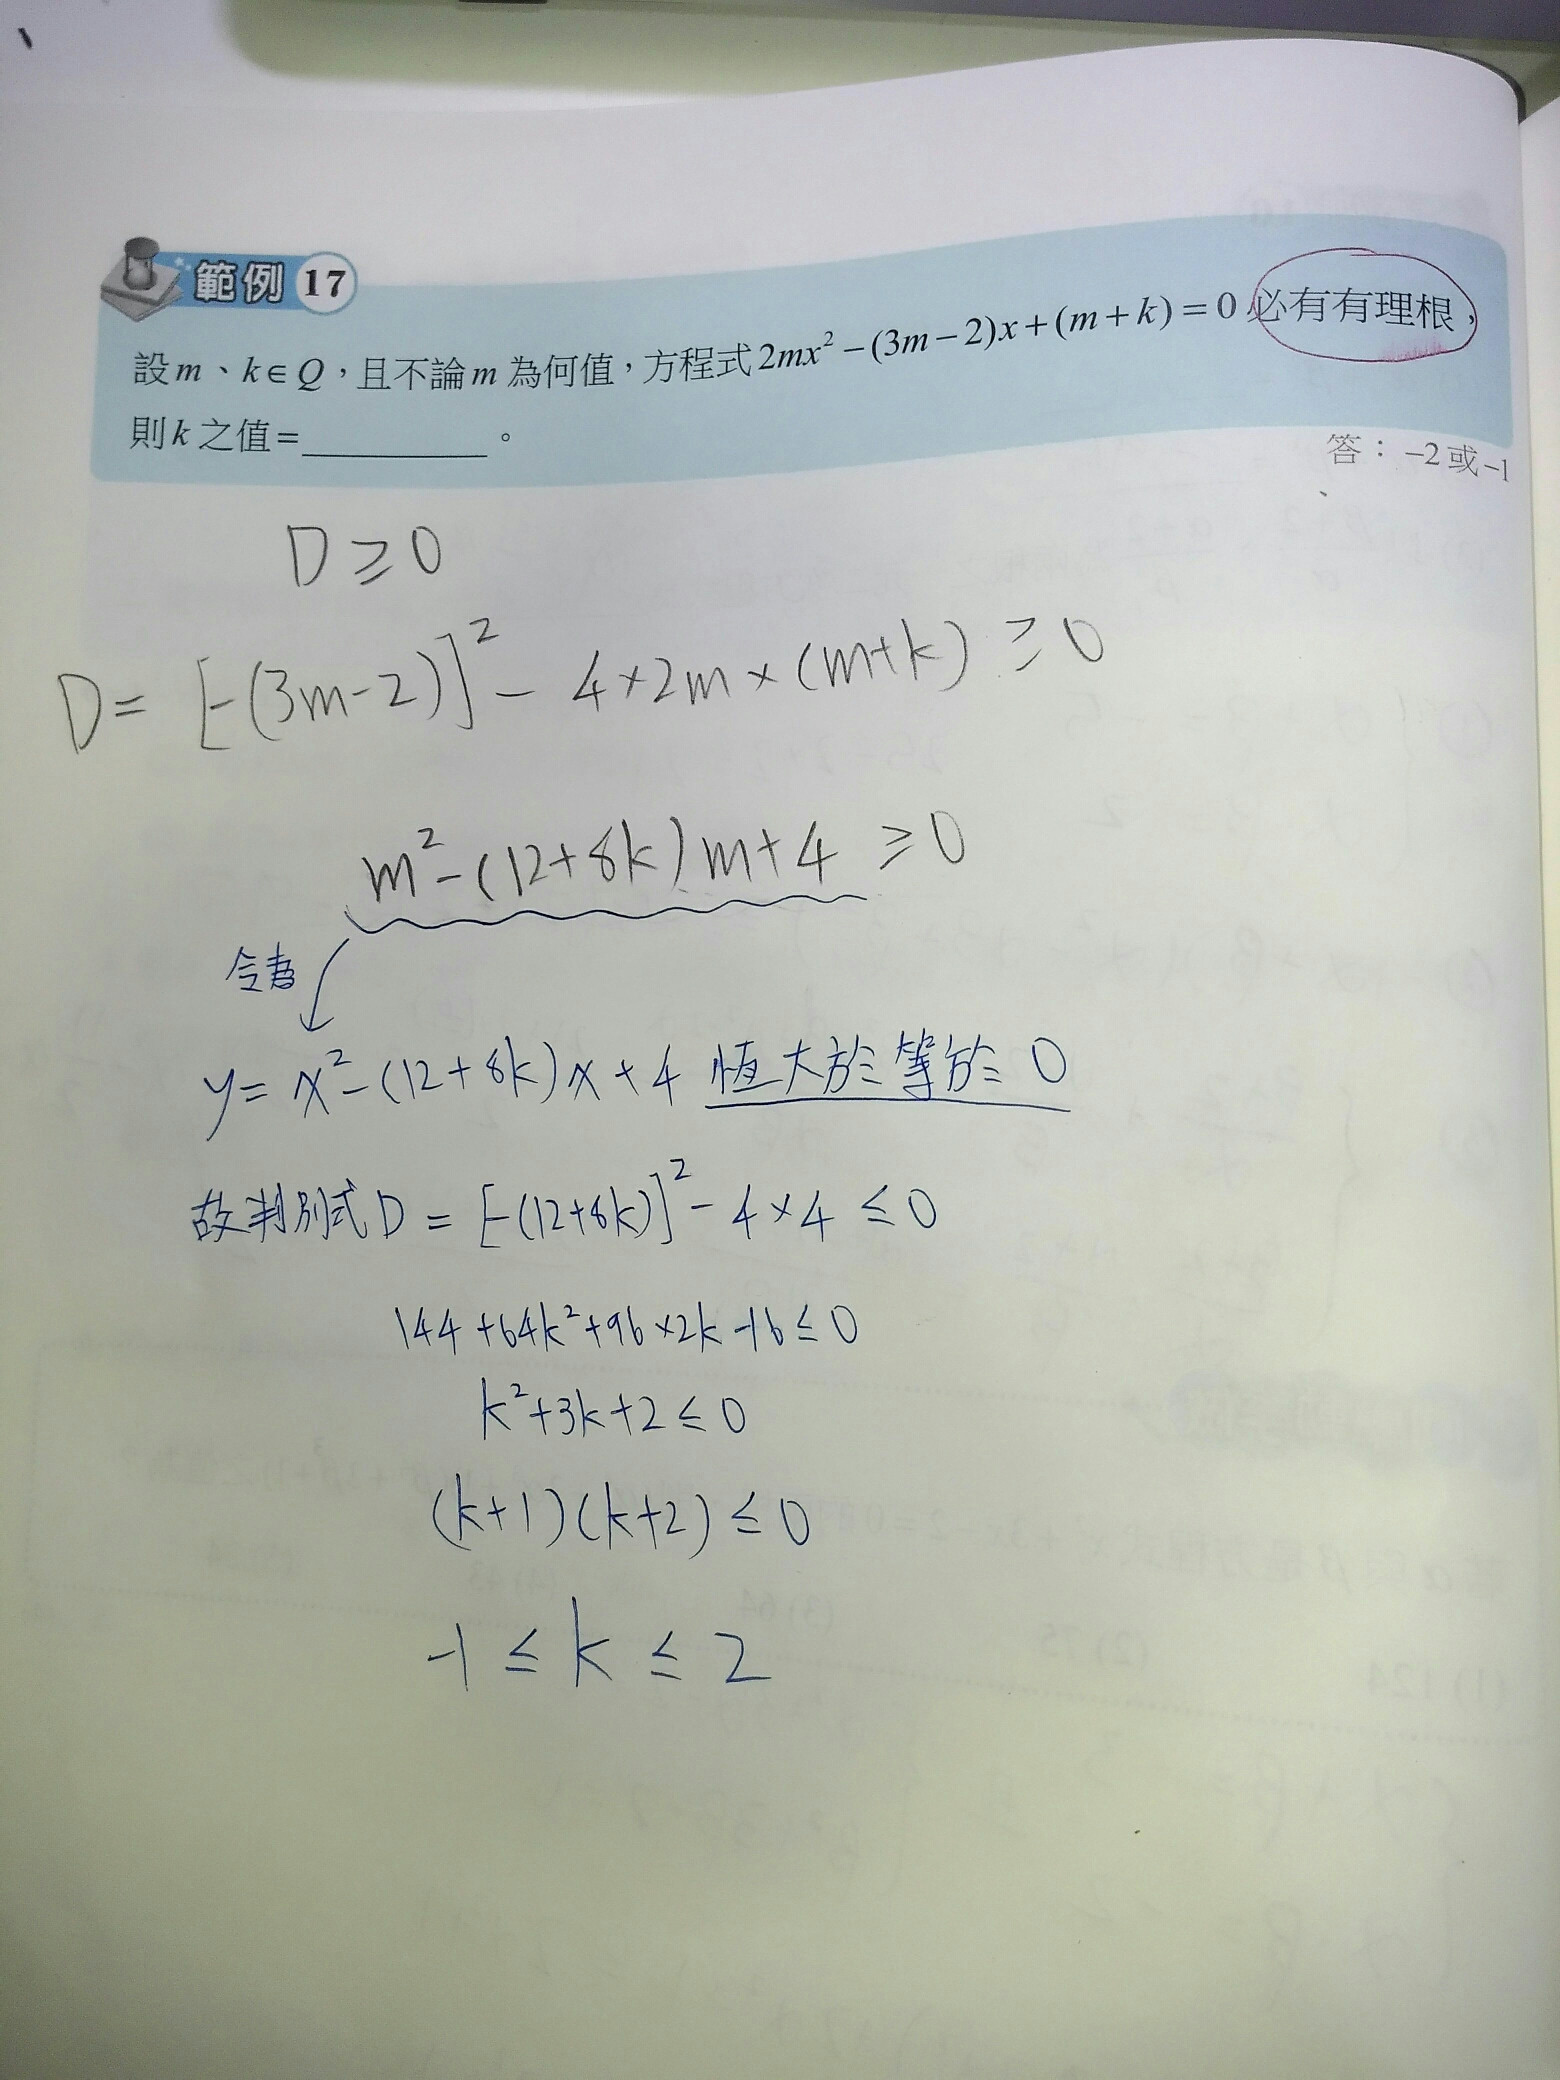 範例 17
設 m、k∈Q，且不論 m 為何值，方程式 2mx² − (3m − 2)x + (m + k) = 0 必有有理根，
則 k 之值 = ________ 。
答：−2 或 −1
D ≥ 0
D = [-(3m-2)]² - 4×2m×(m+k) ≥ 0
m² - (12+8k)m + 4 ≥ 0
令為
y = x² - (12+8k)x + 4 恆大於等於 0
故判別式 D = [-(12+8k)]² - 4×4 ≤ 0
144 + 64k² + 96×2k - 16 ≤ 0
k² + 3k + 2 ≤ 0
(k+1)(k+2) ≤ 0
-1 ≤ k ≤ 2